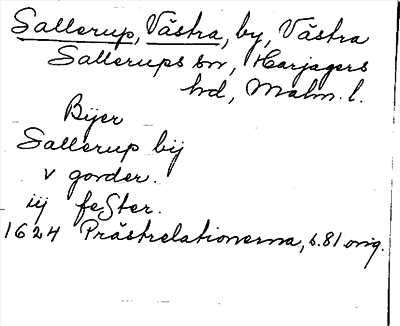 Sallerup, Västra, by, Västra
Sallerups sn, Harjagers
hd, Malm. l.
Bijer
Sallerup bij
v gorder.
iij feSter.
1624 Prästrelationerna, s. 81 orig.